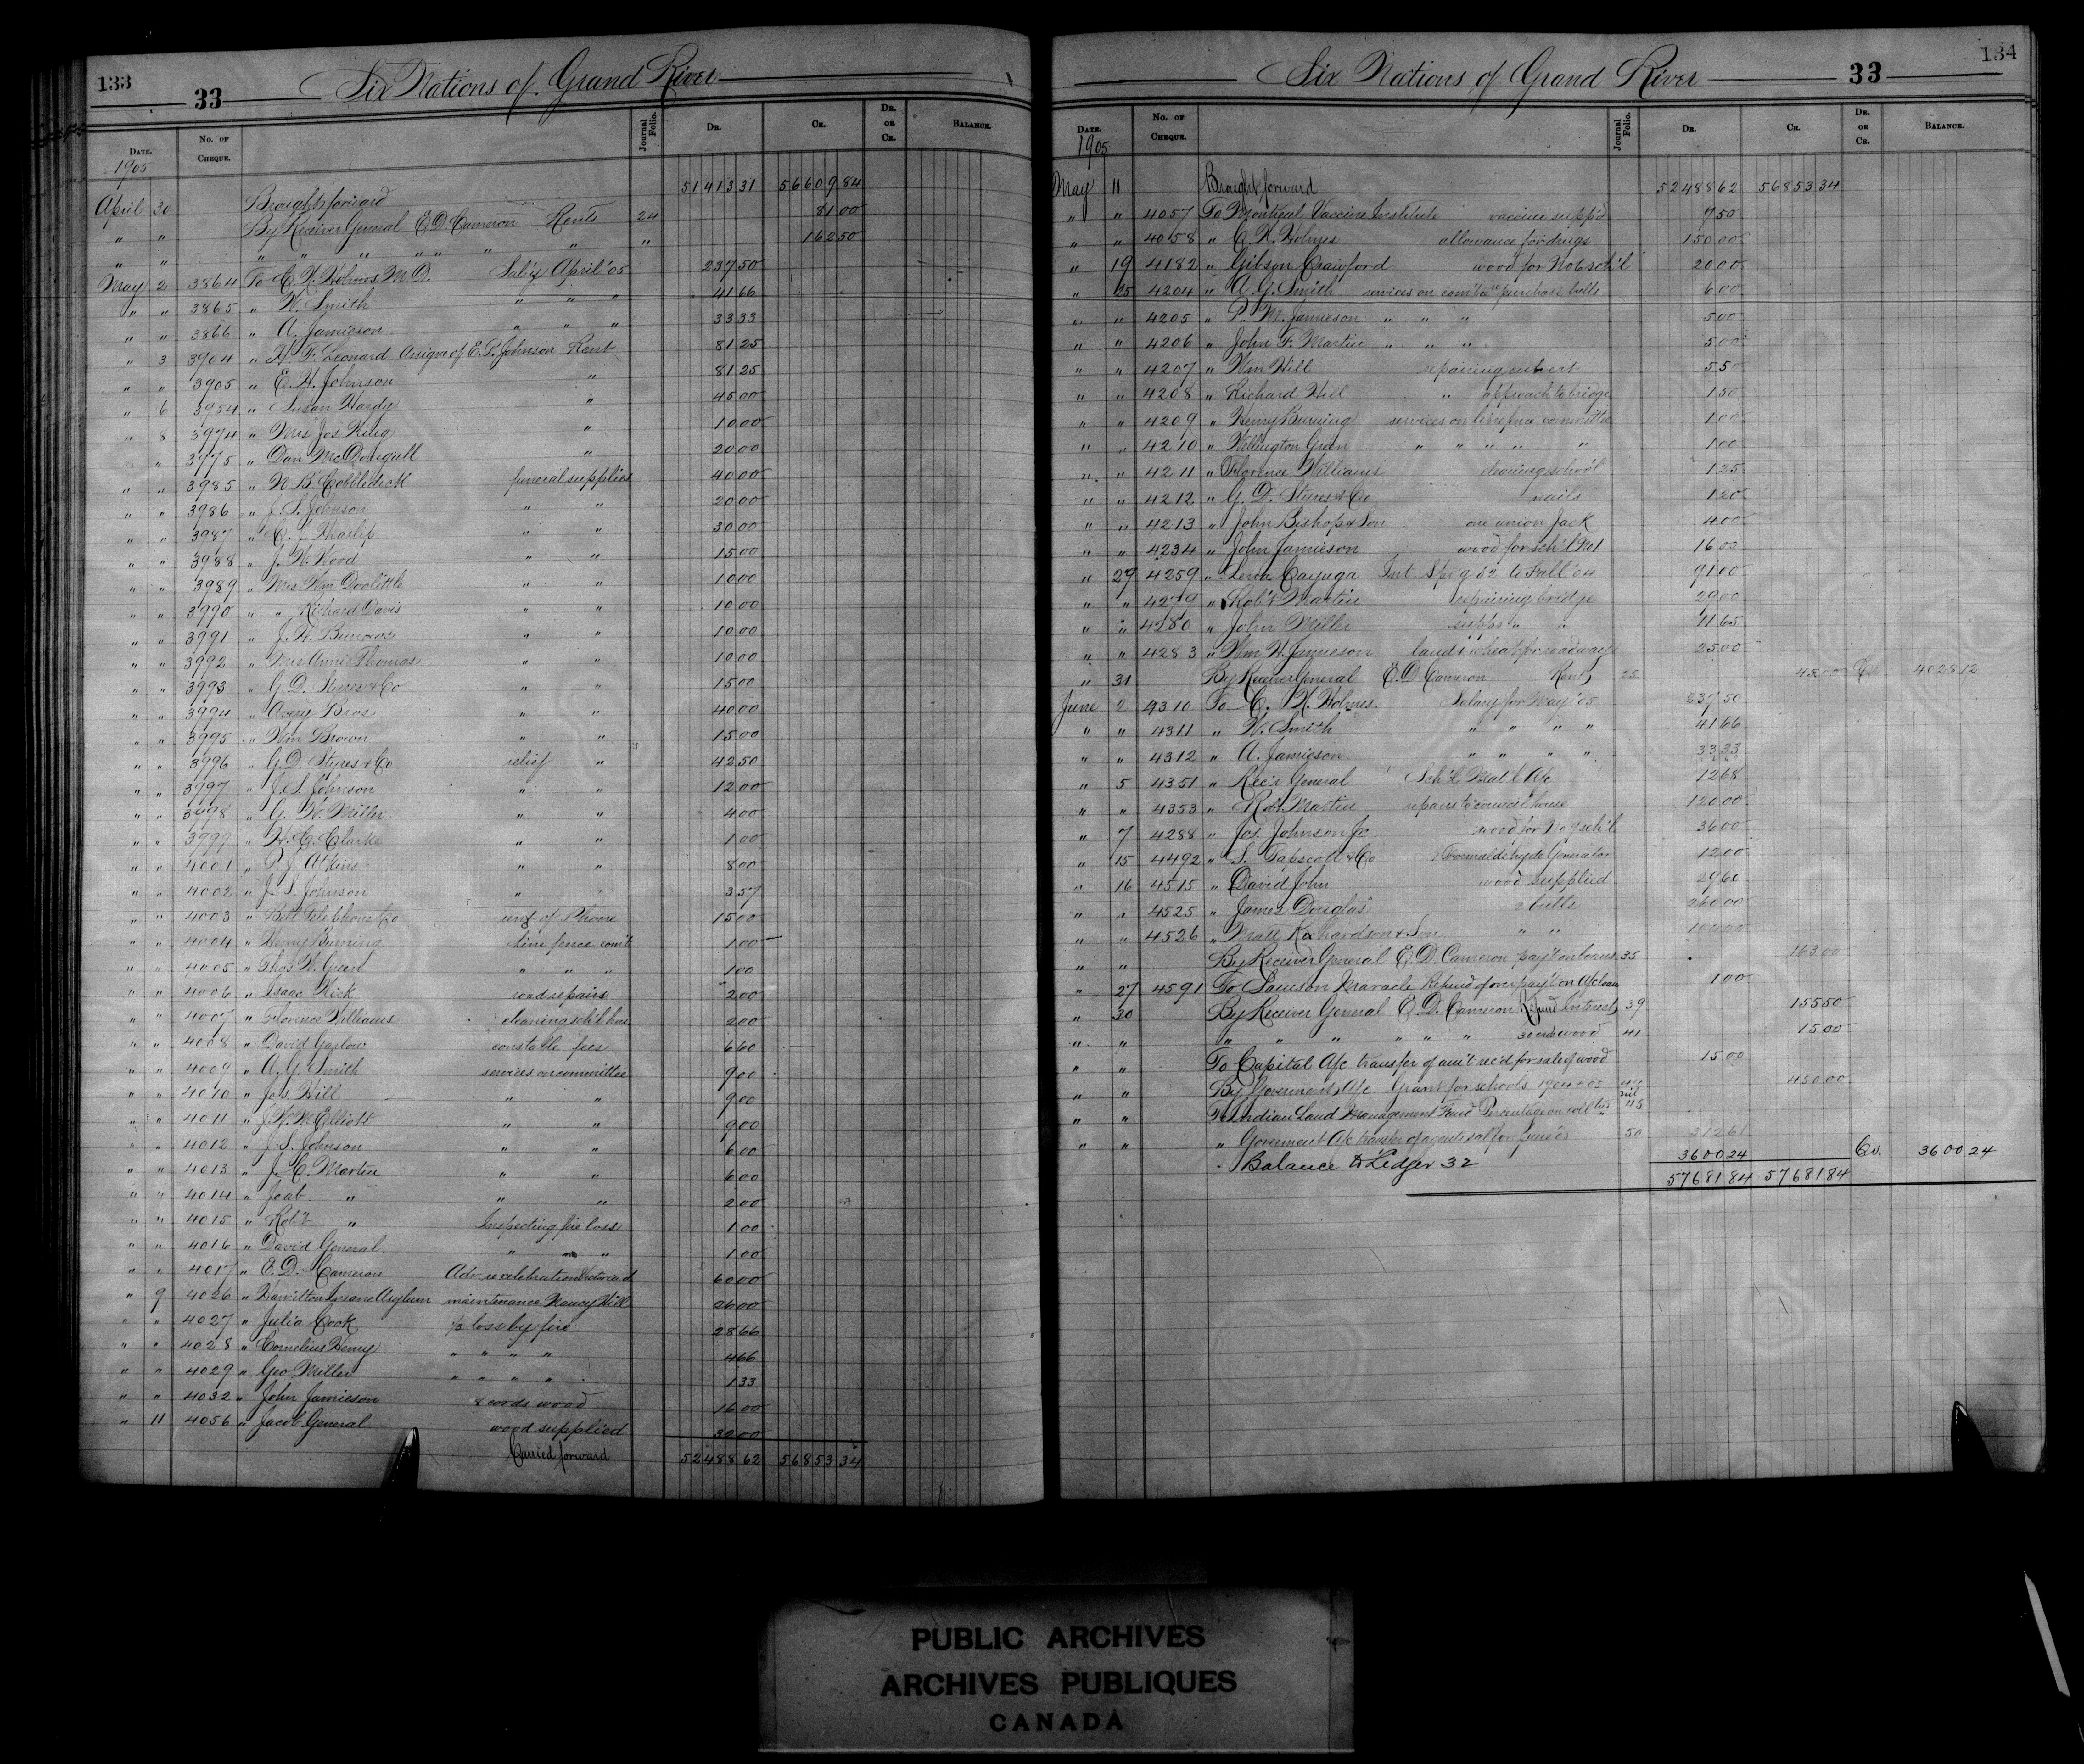 133
33 Six Nations of Grand River
DATE. No. OF CHEQUE. Journal Folio. DR. CR. DR. OR CR. BALANCE.
1905
Brought forward 51413 31 56609 84
April 30 By Receiver General E.D. Cameron Rents 24 81 00
" " " " " " " " " 162 50
May 2 3864 To C. W. Holmes M.D. Sal'y April '05 237 50
" " 3865 " W. Smith " " " 41 66
" " 3866 " A. Jamieson " " " 33 33
" 3 3904 " H. F. Leonard Assignee of E.P. Johnson Rent 81 25
" " 3905 " E. H. Johnson " 81 25
" 6 3954 " Susan Hardy " 45 00
" 8 3974 " Mrs Jos King " 10 00
" 3975 " Dan McDougall " 20 00
" " 3985 " N. B. Cobbledick funeral supplies 40 00
" " 3986 " J. S. Johnson " " 20 00
" " 3987 " C. J. Heaslip " " 30 00
" " 3988 " J. W. Wood " " 15 00
" " 3989 " Mrs Wm Doolittle " " 10 00
" " 3990 " " Richard Davis " " 10 00
" " 3991 " J. H. Burrows " " 10 00
" " 3992 " Mrs Annie Thomas " " 10 00
" " 3993 " G. D. Styres & Co " " 15 00
" " 3994 " Avery Bros " " 40 00
" " 3995 " Wm Brown " " 15 00
" " 3996 " G.D. Styres & Co relief " 42 50
" " 3997 " J. S. Johnson " " 12 00
" " 3998 " G. W. Miller " " 4 00
" " 3999 " H. G. Clarke " " 1 00
" " 4001 " P. J. Atkins " " 8 00
" " 4002 " J. S. Johnson " " 3 57
" " 4003 " Bell Telephone Co of Phone 15 00
" " 4004 " Henry Burning Line fence com't 1 00
" " 4005 " Thos W. Green " " " 1 00
" " 4006 " Isaac road repairs 2 00
" " 4007 " Florence Williams cleaning sch'l hse 2 00
" " 4008 " David Garlow constable fees 6 60
" " 4009 " A. G. Smith services on committee 9 00
" " 4010 " Jos. Hill " " 9 00
" " 4011 " J. W. M. Elliott " " 9 00
" " 4012 " J. S. Johnson " " 6 00
" " 4013 " J. C. Martin " " 6 00
" " 4014 " Joab " " " 2 00
" " 4015 " Rob't " Inspecting fire loss 1 00
" " 4016 " David General " " " 1 00
" " 4017 " E. D. Cameron Adv re celebration Victoria d 60 00
" 9 4026 " Hamilton Insane Asylum maintenance Nancy Hill 26 00
" " 4027 " Julia Cook 1/3 loss by fire 28 66
" " 4028 " Cornelius Henry " " " " 4 66
" " 4029 " Geo Miller " " " " 1 33
" " 4032 " John Jamieson 8 cords wood 16 00
" 11 4056 " Jacob General wood supplied 32 00
Carried forward 52488 62 56853 34
134
Six Nations of Grand River 33
DATE. No. OF CHEQUE. Journal Folio. DR. CR. DR. OR CR. BALANCE.
1905
May 11 Brought forward 52488 62 56853 34
" " 4057 To Montreal Vaccine Institute vaccine supp'd 7 50
" " 4058 " C. W. Holmes allowance for drugs 150 00
" 19 4182 " Gibson Crawford wood for No 6 sch'l 20 00
" 25 4204 " A. G. Smith services on com'tee purchase bulls 6 00
" " 4205 " P. M. Jamieson " " " 5 00
" " 4206 " John F. Martin " " " 5 00
" " 4207 " Wm Hill repairing culvert 5 50
" " 4208 " Richard Hill " approach to bridge 1 50
" " 4209 " Henry Burning services on line fence committee 1 00
" " 4210 " Wellington Green " " " " " 1 00
" " 4211 " Florence Williams cleaning school 1 25
" " 4212 " G. D. Styres & Co nails 1 20
" " 4213 " John Bishop & Son one union Jack 4 00
" " 4234 " John Jamieson wood for sch'l No 1 16 00
" 29 4259 " Cayuga Int. Sp'g 02 to Fall '04 91 00
" " 4279 " Rob't Martin repairing bridge 29 00
" " 4280 " John Miller supps " " 11 65
" " 4283 " Wm H. Jamieson land & wheat for roadway 25 00
" 31 By Receiver General E. D. Cameron Rent 25 45 00 Cr 4028 12
June 2 4310 To C. W. Holmes Salary for May '05 237 50
" " 4311 " W. Smith " " " " 41 66
" " 4312 " A. Jamieson " " " " 33 33
" 5 4351 " Rec'r General Sch'l Mat'l A/c 12 68
" " 4353 " Rob't Martin repairs to council house 120 00
" 7 4288 " Jos. Johnson Jr. wood for No 9 sch'l 36 00
" 15 4492 " S. Tapscott & Co 1 Formaldehyde Generator 12 00
" 16 4515 " David John wood supplied 29 60
" " 4525 " James Douglas 2 bulls 260 00
" " 4526 " Matt Richardson & Son " " 100 00
" " By Receiver General E. D. Cameron pay't on loans 35 163 00
" 27 4591 To Samson Maracle Refund of over pay't on A/c loan 1 00
" 30 By Receiver General E. D. Cameron Refund Interest 39 155 50
" " " " " " " " wood 41 15 00
" " To Capital A/c transfer of am't rec'd for sale of wood 15 00
" " By Government A/c Grant for schools 1904-05 44 450 00
" " To Indian Land Management Fund Percentage on coll'tns 45 nil
" " " Government A/c transfer of agent's sal for June '05 50 312 61
" Balance to Ledger 32 3600 24 Cr. 3600 24
57681 84 57681 84
PUBLIC ARCHIVES
ARCHIVES PUBLIQUES
CANADA